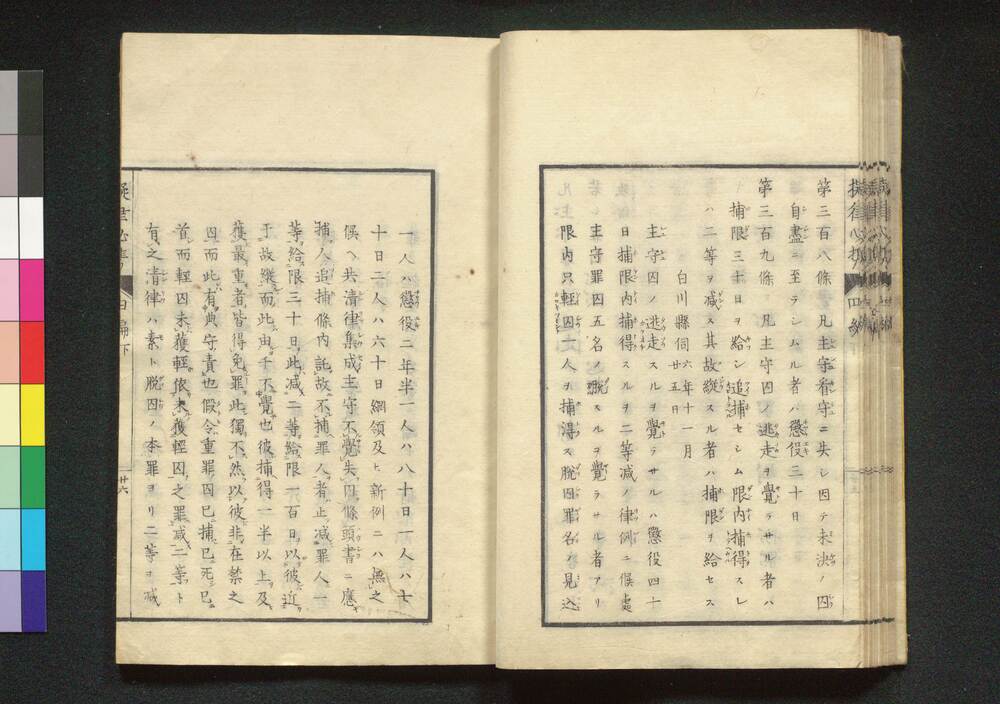 第三百八條 凡主守看守ニ失シ因テ未決ノ囚
自盡ニ至テシムル者ハ懲役三十日
第三百九條 凡主守囚ノ逃走ヲ覺ラサル者ハ
捕限三十日ヲ給シ追捕セシム限内捕得スレ
ハ二等ヲ减ス其故縱スル者ハ捕限ヲ給セス
白川縣伺 六年十一月廿五日
主守囚ノ逃走スルヲ覺ラサルハ懲役四十
日捕限内捕得スルヲ二等减ノ律例ニ候處
主守罪囚五名ノ脱スルヲ覺ラサル者アリ
限内只輕囚一人ヲ捕得ス脱囚罪名ノ見込
一人ハ懲役二年半一人ハ八十日一人ハ七
十日二人ハ六十日綱領及ヒ新例ニハ無之
候ヘ共清律集成主守不覺失囚條頭書ニ應
捕人追捕條内託故不捕罪人者止减罪人一
等給限三十日此减二等給限一百日以彼近
于故縱而此由于不覺也彼捕得一半以上及
獲最重者皆得免罪此獨不然以彼非在禁之
囚而此有典守責也假令重罪囚已捕已死已
首而輕囚未獲輕依未獲輕囚之罪减二等ト
有之清律ハ素ト脱囚ノ本罪ヨリ二等ヲ减
四編下
廿六